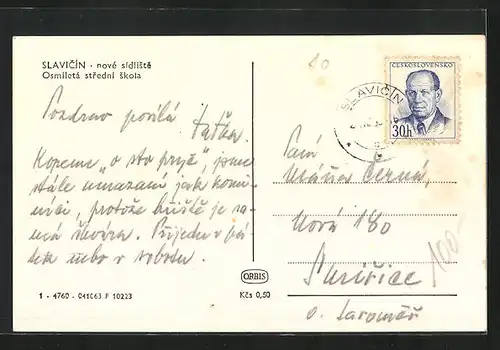 SLAVIČÍN - nové sídliště
Osmiletá střední škola
Pozdrav posílá
Taťka.
Kopeme „o sto pryč", jsme
stále umazaní jak komi-
níci, protože hřiště je sa-
má škvára. Přijedu v pá-
tek nebo v sobotu.
1 - 4760 - 041063 F 10223
ORBIS
Kčs 0,50
20
ČESKOSLOVENSKO
30h
SLAVIČÍN
Paní
Černá,
Nová 180
100-
o. Jaroměř